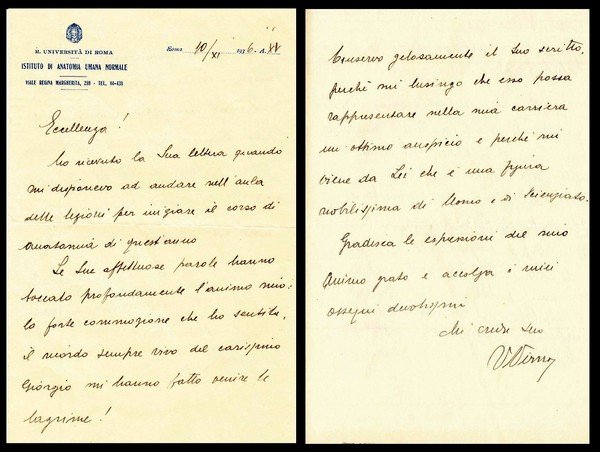 R. UNIVERSITÀ DI ROMA
ISTITUTO DI ANATOMIA UMANA NORMALE
VIALE REGINA MARGHERITA, 289 - TEL. 64-628
Roma 10/XI 1936.
Eccellenza!
ho ricevuto la Sua lettera quando
mi disponevo ad andare nell'aula
delle lezioni per iniziare il corso di
anatomia di quest'anno
Le Sue affettuose parole hanno
toccato profondamente l'animo mio;
la forte commozione che ho sentita,
il ricordo sempre vivo del carissimo
Giorgio mi hanno fatto venire le
lagrime!
Conservo gelosamente il Suo scritto,
perchè mi lusingo che esso possa
rappresentare nella mia carriera
un ottimo auspicio e perchè mi
viene da Lei che è una figura
nobilissima di Uomo e di Scienziato.
Gradisca le espressioni del mio
animo grato e accolga i miei
ossequi devotissimi
Mi creda Suo